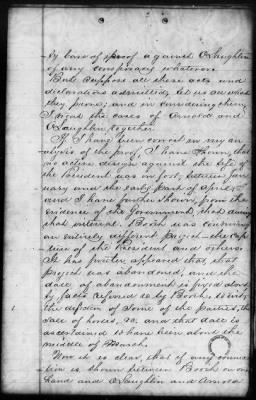 ly bare of proof against O'Laughlin
of any conspiracy whatever.
But suppose all these acts and
declarations admitted, let us see what
they prove; and in considering them,
I treat the cases of Arnold and
O'Laughlin together.
If I have been correct in my an
alysis of the proof, I have shown, that
no active design against the life of
the President was on foot, between Jan
uary and the early part of April;
and I have further shown, from the
evidence of the Government, that during
that interval, Booth was contriving
an entirely different project—the cap
ture of the President and others.
It has further appeared that, that
project was abandoned; and the
date of abandonment is fixed also
by facts referred to by Booth, to wit:
the defection of some of the parties, the
sale of horses, &c. and that date is
ascertained to have been about the
middle of March.
Now it is clear, that if any connec
tion is shown between Booth on one
hand and O'Laughlin and Arnold